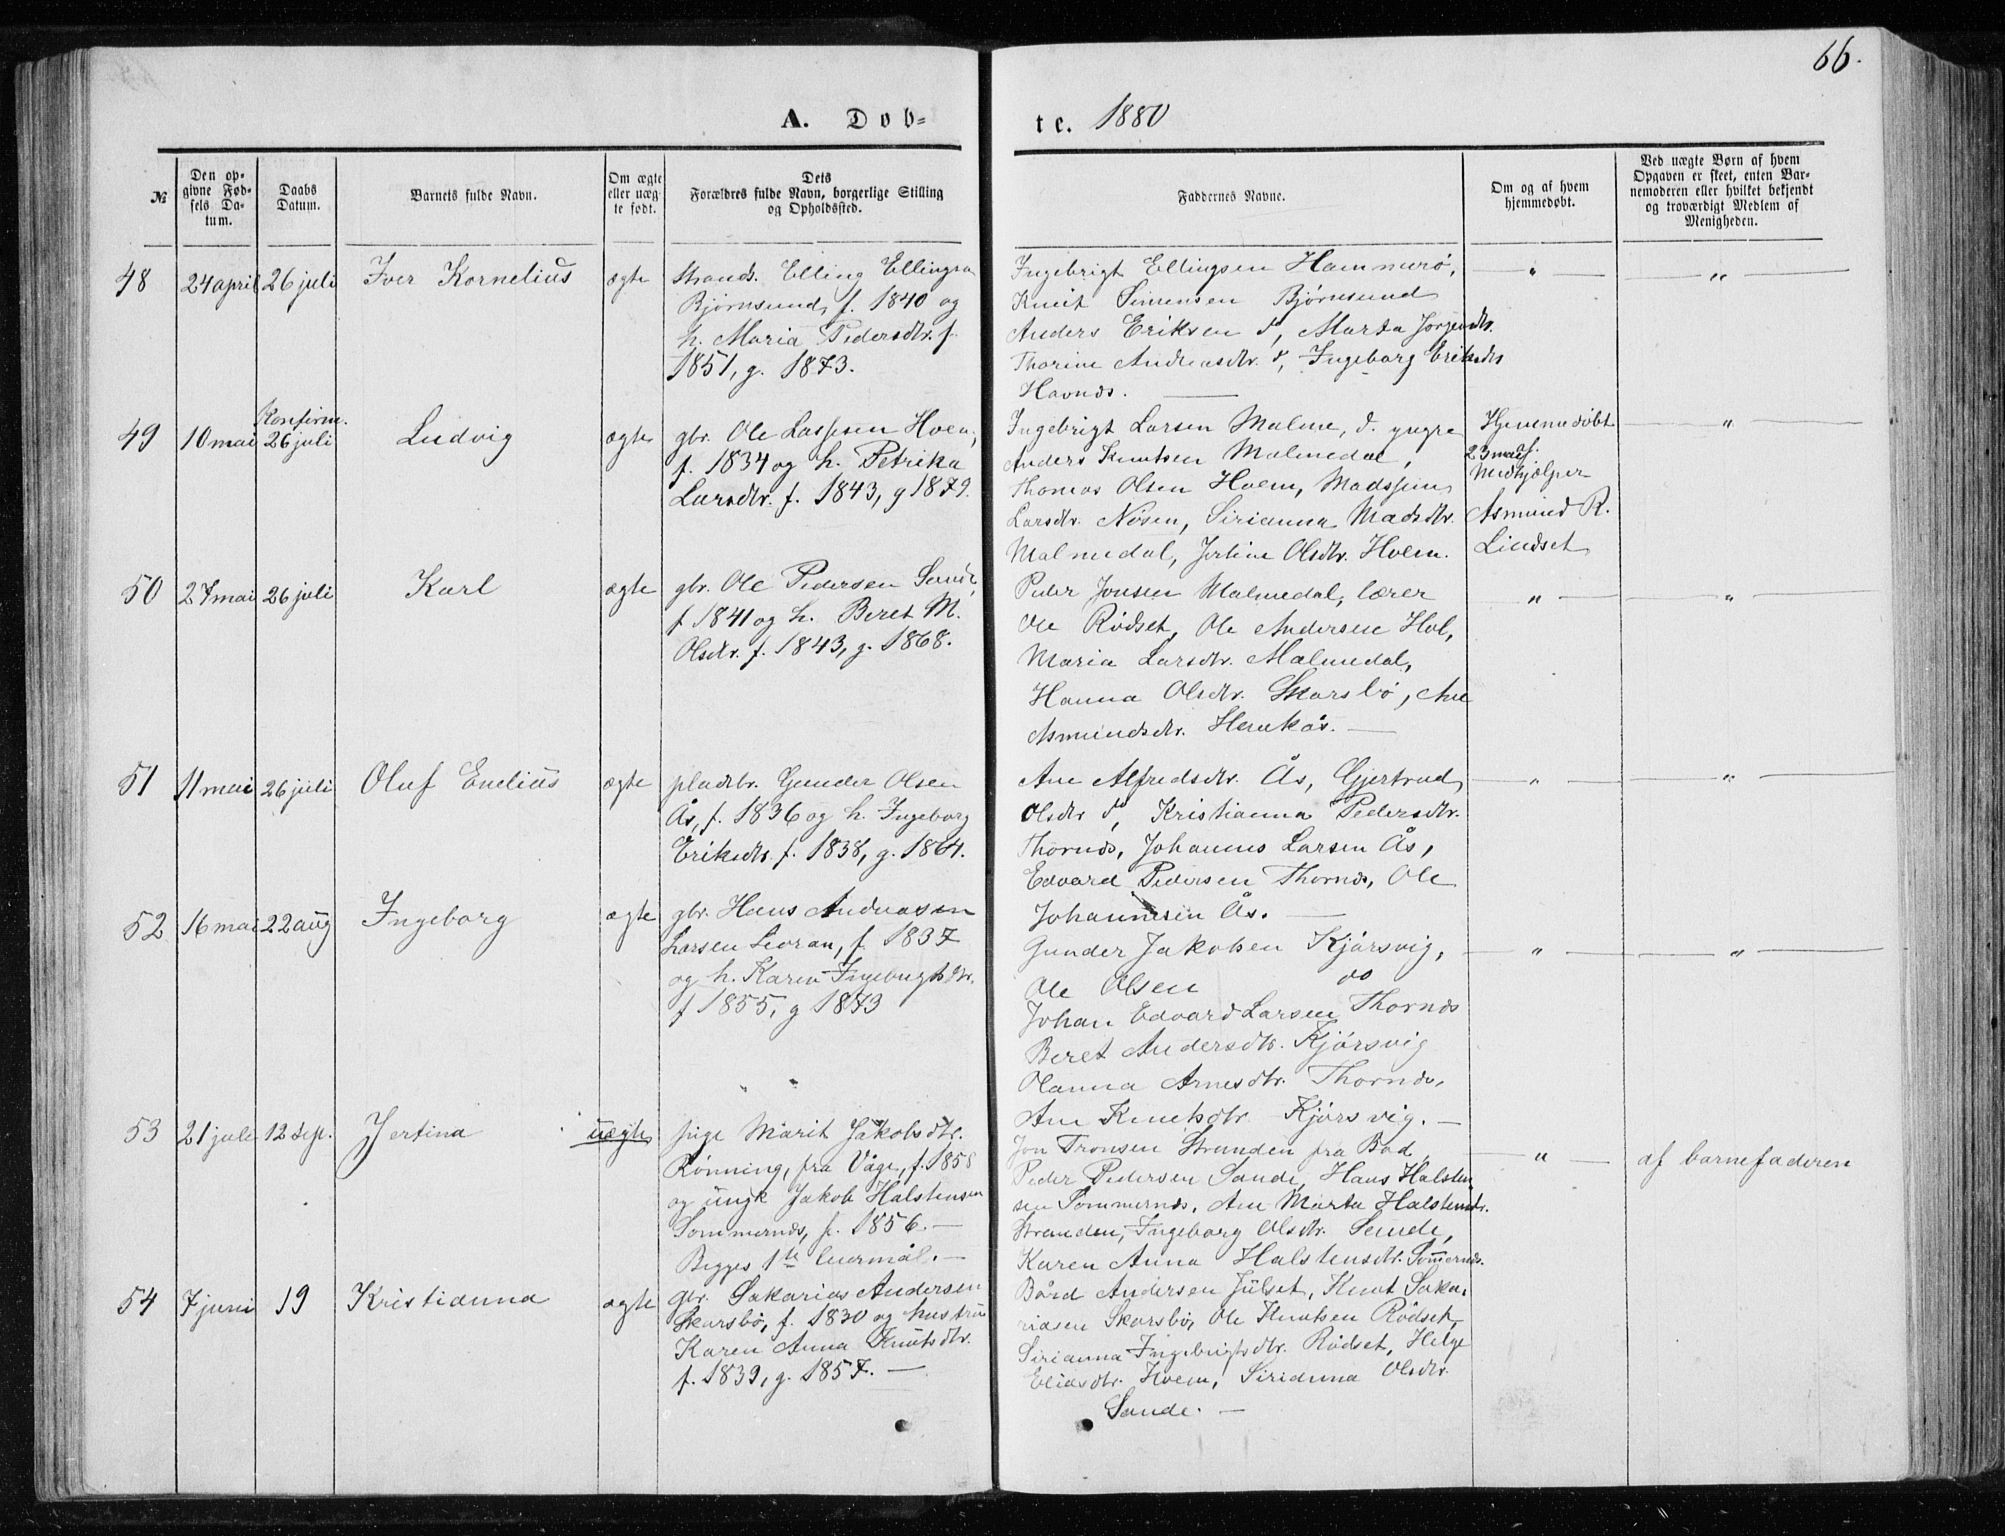 66.
A. Døb-
te. 1880
№
Den op-
givne Fød-
sels Da-
tum.
Daabs
Datum.
Barnets fulde Navn.
Om ægte
eller uæg-
te født.
Dets
Forældres fulde Navn, borgerlige Stilling
og Opholdssted.
Faddernes Navne.
Om og af hvem
hjemmedøbt.
Ved uægte Børn af hvem
Opgaven er skeet, enten Bar-
nemoderen eller hvilket bekjendt
og troværdigt Medlem af
Menigheden.
48
24 april
26 juli
Iver Kornelius
ægte
Strands. Elling Ellingsen
Bjørnsund, f. 1840 og
h. Maria Pedersdtr. f.
1851, g. 1873.
Ingebrigt Ellingsen Hammerö,
Knut Simensen Bjørnsund
Anders Eriksen do, Marta Jørgensdtr.
Thorine Andreasdtr. do, Ingeborg Eriksdtr
Havnds.
"
"
49
10 mai
Konfirm.
26 juli
Ludvig
ægte
gbr. Ole Lassesen Hoem,
f. 1834 og h. Petrika
Larsdtr. f. 1843, g 1879.
Ingebrigt Larsen Malme, d. yngre
Anders Knutsen Malmedal,
Thomas Olsen Hoem,
Larsdtr. Nösen, Sirianna Madsdtr.
Malmedal, Jertine Olsdtr. Hoem.
Hjemmedöbt
23 mai f.
Medhjælper
Asmund R.
Lindset
"
50
27 mai
26 juli
Karl
ægte
gbr. Ole Pedersen Sande,
f 1841 og h. Beret M.
Olsdtr. f. 1843, g. 1868.
Peder Jonsen Malmedal, lærer
Ole Rödset, Ole Andersen Hol,
Maria Larsdtr. Malmedal,
Hanna Olsdtr. Skarsbö, Ane
Asmundsdtr. Haukås.
"
"
51
11 mai
26 juli
Oluf Emelius
ægte
pladsbr. Gunder Olsen
Ås, f. 1836 og h. Ingeborg
Eriksdtr. f. 1838, g. 1864.
Ane Alfredsdtr. Ås, Gjertrud
Olsdtr do, Kristianna Pedersdtr.
Thornds, Johannes Larsen Ås,
Edvard Pedersen Thornds, Ole
Johannesen Ås.
"
"
52
16 mai
22 aug
Ingeborg
ægte
gbr. Hans Andreasen
Larsen Leoran, f. 1837
og h. Karen Ingebrigtsdtr.
f 1855, g 1873
Gunder Jakobsen Kjörsvig,
Ole Olsen do
Johan Edvard Larsen Thornds
Beret Andersdtr. Kjörsvig
Olanna Arnesdtr. Thornds,
Ane Knutsdtr Kjörsvig.
"
"
53
21 juli
12 sep.
Jertina
uægte
pige Marit Jakobsdtr.
Rönning, fra Våge, f. 1858
og ungk Jakob Halstensen
Sommernds, f. 1856.
Begges 1ste leiermål.
Jon Tronsen Stranden fra Bod,
Peder Pedersen Sande, Hans Halsten
sen Sommernds, Ane Marta Halstensdtr.
Stranden, Ingeborg Olsdtr. Sande,
Karen Anna Halstensdtr. Sommernds.
"
af barnefaderen
54
7 juni
19
Kristianna
ægte
gbr. Sakarias Andersen
Skarsbö, f. 1830 og hustru
Karen Anna Knutsdtr.
f. 1839, g. 1857.
Bård Andersen Julset, Knut Saka-
riasen Skarsbö, Ole Knutsen Rödset,
Sirianna Ingebrigtsdtr. Rödset, Helge
Eliasdtr. Hoem, Sirianna Olsdtr.
Sande.